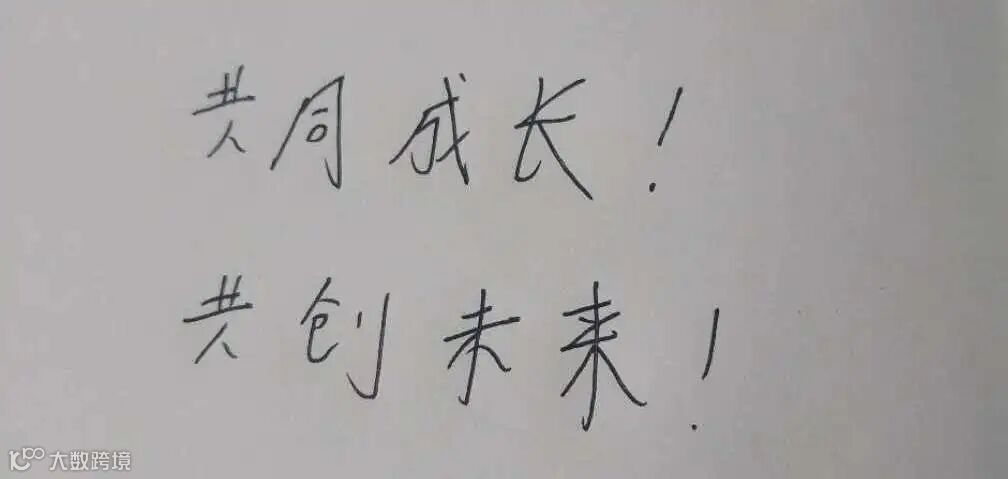 共同成长！
共创未来！
大数跨境